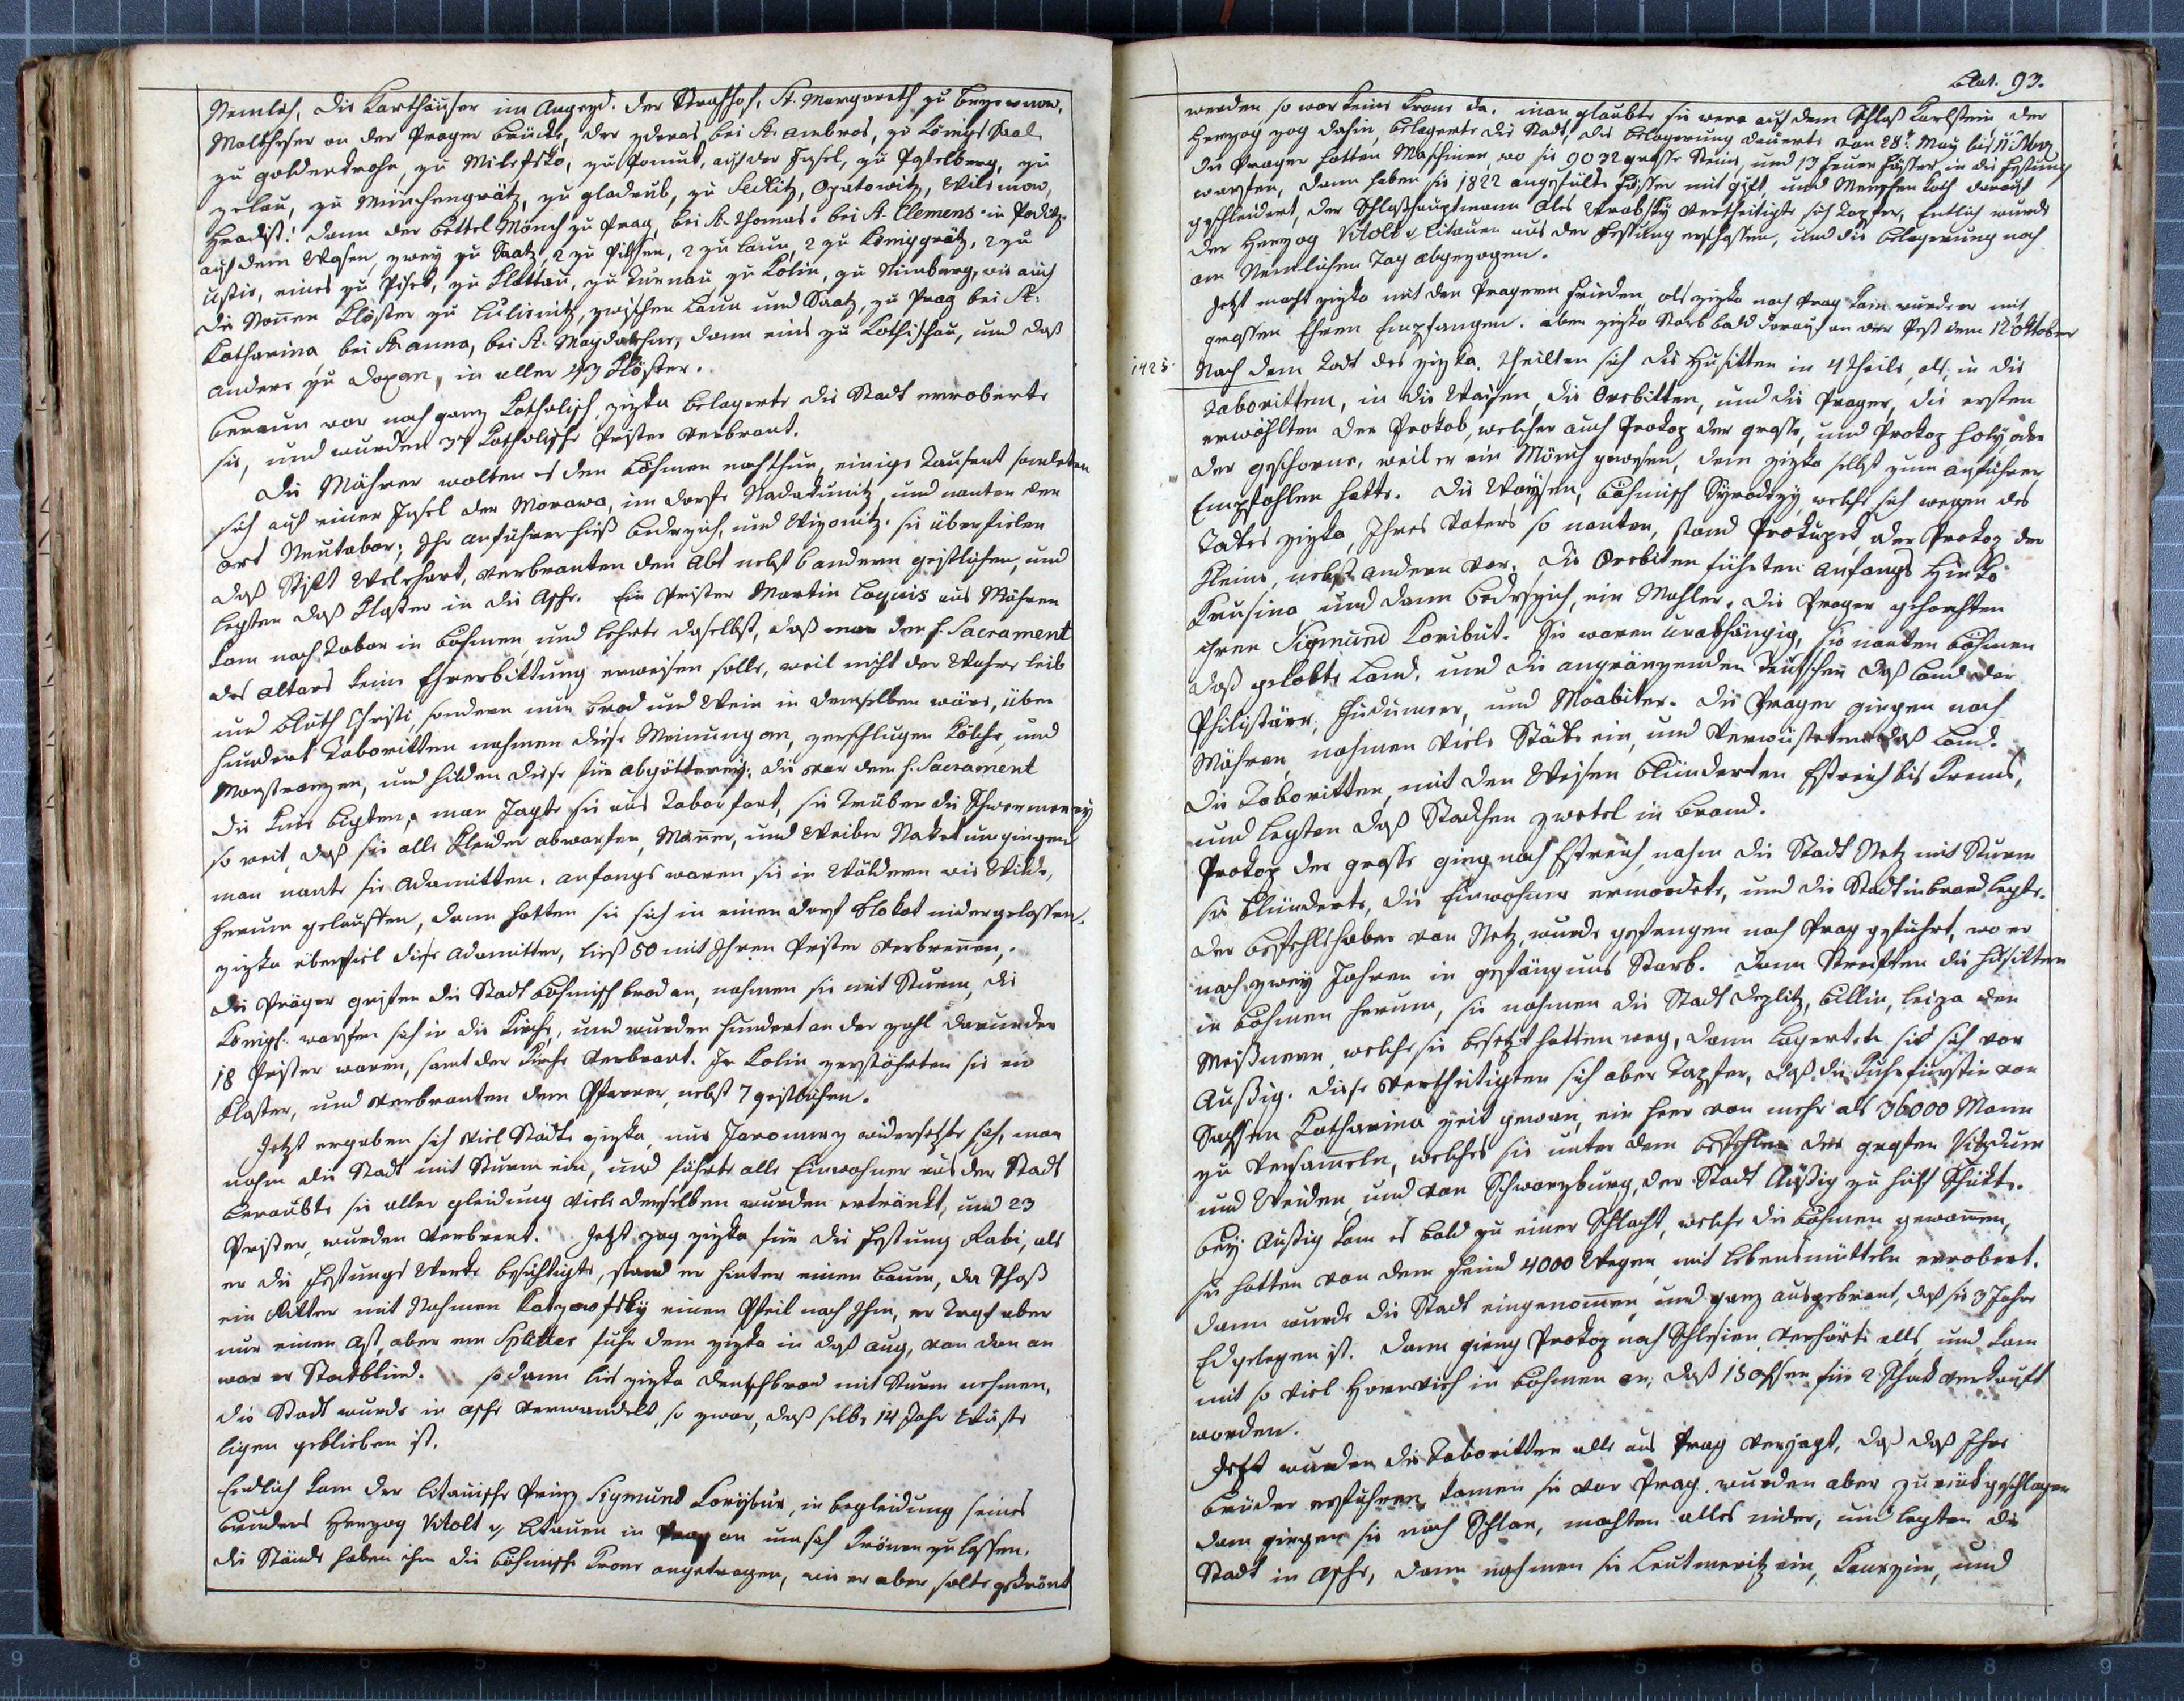 Nemlich, die Karthäuser im Augezd. der Strahhof, St. Margareth zu Brzewnow,
Maltheser an der Prager Brücke, der zderas, bei St. Ambros, zu Königs Saal
zu goldenkrohn, zu Milefsko, zu Pomuk, auf der Insel, zu Postelberg, zu
zelau, zu Münchengrätz, zu gladrub, zu Sedlitz, Opatowitz, Wilimow,
Hradist: dann der bettel Mönch zu Prag, bei St. Thomas. bei St. Clemens in Poditz.
auf dem Wasen, zwey zu Saatz, 2 zu Pilsen, 2 zu Laun, 2 zu Königgrätz, 2 zu
Ustie, eines zu Pisek, zu Klattau, zu Turnau zu Kolin, zu Nimburg, wie auch
die Nonnen Klöster zu zwischen Laun und Saatz, zu Prag bei St:
Katharina, bei St. Anna, bei St. Magdalena, dann eins zu Kothischau, und daß
andere zu Doxan, in aller 43 Klöster.
Beraun war noch ganz Katholisch, zizka belagerte die Stadt erroberte
sie, und wurden 37 Katholische Prister verbrant.
Die Mährer wolten es den Böhmen nachthun, einige Tausent samleten
sich auf einer Insel der Morawa, im dorfe Nadakunitz, und nanten den
ort Neutabor; Ihr anführer hieß bedrzich, und Wizonitz. sie überfielen
daß Stift Welehart, verbranten den Abt nebst 6 andern geistlichen, und
legten daß Kloster in die Asche. Ein Prister Martin Loquis aus Mähren
kam nach Tabor in Böhmen, und lehrte daselbst, daß man dem h. Sacrament
des altars keine Ehrerbittung erweisen solle, weil nicht der Wahre leib
und bluth Christi, sondern nur Brod und Wein in demselben wäre, über
hundert Taboritten nahmen diese Meinung an, zerschlugen Kölche, und
Monstranzen, und hilden diese für abgötterey, die vor dem h. Sacrament
die Knie bigten, man Jagte sie aus Tabor fort, sie Triben die Schwermerey
so weit, daß sie alle Kleider abwarfen, Männer, und Weiber Naket umgingen
man nante sie Adamitten. anfangs waren sie in Wäldern wie Wilde,
herum gelauffen, dann hatten sie sich in einen dorf Blokot nidergelassen.
zizka überfiel diese Adamitten, ließ 50 mit Ihren Prister verbrennen,
die Präger grifen die Stadt Böhmischbrod an, nahmen sie mit Sturm, die
Königl. warfen sich in die Kirche, und wurden hundert an der zahl darunder
18 Prister waren, samt der Kirche verbrant. In Kolin zerstöhrten sie ein
Kloster, und verbranten den Pfarrer, nebst 7 geistlichen.
Jetzt ergaben sich viel Städte zizka nur Jaromirz widersetzte sich, man
nahm die Stadt mit Sturm ein, und führte alle Einwohner aus der Stadt
beraubte sie aller gleidung viele derselben wurden ertränkt, und 23
Prister, wurden verbrent. Jetzt zog zizka für die Festung Rabi, als
er die Festungs Werke besichtigte, stand er hinter einen Baum, da schoß
ein Ritter mit Nahmen Katzowfsky einen Pfeil nach Ihm, er Traf aber
nur einen Ast, aber ein Splitter fuhr dem zizka in daß aug, von dan an
war er Stockblind. so dann lies zizka deutschbrod mit Sturm nehmen,
die Stadt wurde in asche verwandelt, so zwar, daß selbe 14 Jahr Wüste
ligen geblieben ist.
Endlich kam der litauische Prinz Sigmund Korybut, in begleidung seines
bruders Herzog Vitolt v. Litauen in Prag an um sich Krönen zu lassen.
die Stände haben ihm die böhmische Krone angetragen, wie er aber solte gekrönt
Blat. 93.
werden, so war keine Krone da. man glaubte sie were auf dem Schloß Karlstein der
Herzog zog dahin, belagerte die Stadt, die belagerung dauerte von 28t. May bis 11 Nov.
die Prager hatten Maschinen, wo sie 9032 grosse Steine, und 13 feuer Fässer in die Festung
warfen, dann haben sie 1822 angefülte Fässer mit gift, und Menschen Koth darauf
geschleidert, der Schloßhauptmann Ales Wrabsky vertheitigte sich Tapfer, Entlich wurde
der Herzog Vitolt v. Litauen aus der Festung erschossen, und die belagerung noch
am Nemlichen Tag abgezogen.
Jetzt macht zizka mit den Pragern Frieden, als zizka nach Prag kam wurde er mit
grossen Ehren Empfangen. aber zizka Starb bald darauf an der Pest dem 12 Oktober
1425. Nach dem Todt des zizka. theilten sich die Husitten in 4 Theile, als, in die
Taboritten, in die Waisen, die Orebitten, und die Prager, die ersten
erwählten den Prokob, welcher auch Prokop der grosse, und Prokop holy oder
der geschorne, weil er ein Mönch gewesen, dem zizka selbst zum anführer
Empfohlen hatte. Die Waysen, böhmisch Syrodczy, welche sich wegen des
Todes zizka, Ihres Vaters so nanten, stand Prokupek, der Prokop der
Kleine, nebst andern vor. die Orebiten führten anfangs Hinko
Krusina und dann bedrzich, ein Mahler. die Prager gehorchten
ihren Sigmund Koribut. Sie waren unabhängig, sie nanten Böhmen
daß gelobte Land, und die angränzenden Teutschen daß Land der
Philistäer, Judumeer, und Moabiter. die Prager gingen nach
Mähren, nahmen viele Städte ein, und Verwüsteten daß Land.
Die Taboritten, mit den Weisen blünderten Estreich bis Krems,
und legten daß Stadchen zwetel in brand.
Prokop der grosse ging nach Estreich nahm die Stadt Retz mit Sturm
sie blünderte, die Einwohner ermordete, und die Stadt in brand legte.
der befehlshaber von Retz, wurde gefangen nach Prag geführt, wo er
nach zwey Jahren in gefängnus Starb. dann Streiften die Husitten
in böhmen herum, sie nahmen die Stadt Deplitz, Billin, Leipa den
Meißnern, welche sie besetzt hatten weg, dann lagerten sie sich vor
Außig. diese vertheitigten sich aber Tapfer, daß die Kuhrfürstin von
Sachsen Katharina zeit gewan, ein Heer von mehr als 36000 Mann
zu versammeln, welches sie unter dem befehlen der grafen Vitzdum
und Weiden, und von Schwarzburg, der Stadt Außig zu hülf Schikte.
bey Außig kam es bald zu einer Schlacht, welche die Böhmen gewannen,
sie hatten von dem Feind 4000 Wegen mit Lebensmütteln errobert.
dann wurde die Stadt eingenommen und ganz ausgebrant, daß sie 3 Jahre
Ed gelegen ist. dann gieng Prokop nach Schlesien, verhörte alles und kam
mit so viel Hornvieh in Böhmen an, daß 15 ochsen für 2 Schok verkauft
worden.
Jetzt wurden die Taboritten alle aus Prag verjagt, daß daß Ihre
Brüder erfuhren, kamen sie vor Prag, wurden aber zurükgeschlagen
dan giengen sie nach Schlan, machten alles nider, und legten die
Stadt in asche, dann nahmen sie Leutmeritz ein, Kaurzim, und